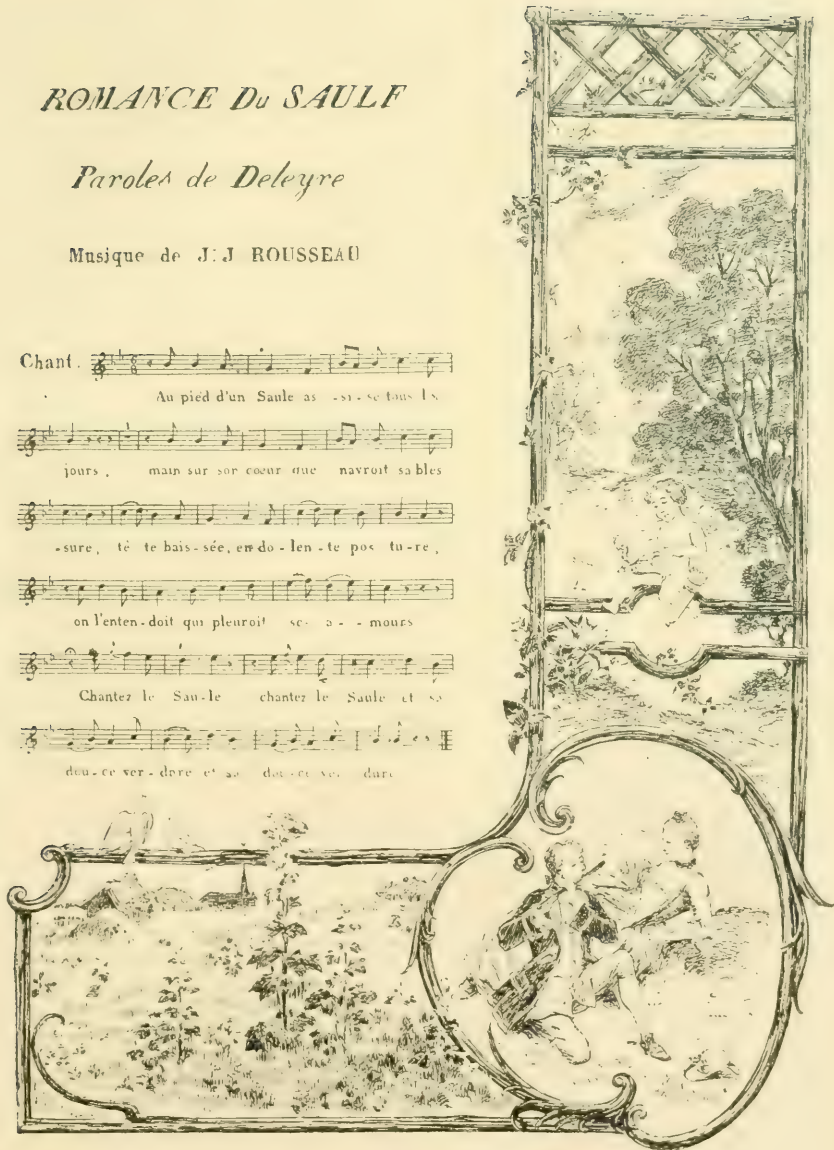 ROMANCE Du SAULE
Paroles de Deleyre
Musique de J. J ROUSSEAU
Chant.
Au pied d'un Saule as - si - se tous les
jours, main sur son coeur que navroit sa bles
- sure, tê te bais - sée, en do - len - te pos tu - re,
on l'enten - doit qui pleuroit ses a - - mours
Chantez le Sau - le chantez le Saule et sa
dou - ce ver - dure et sa dou - ce ver dure